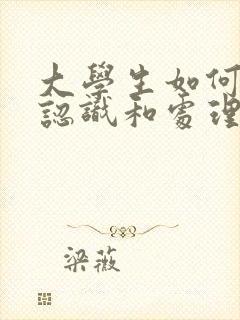 大學生如何
認識和處理
梁薇